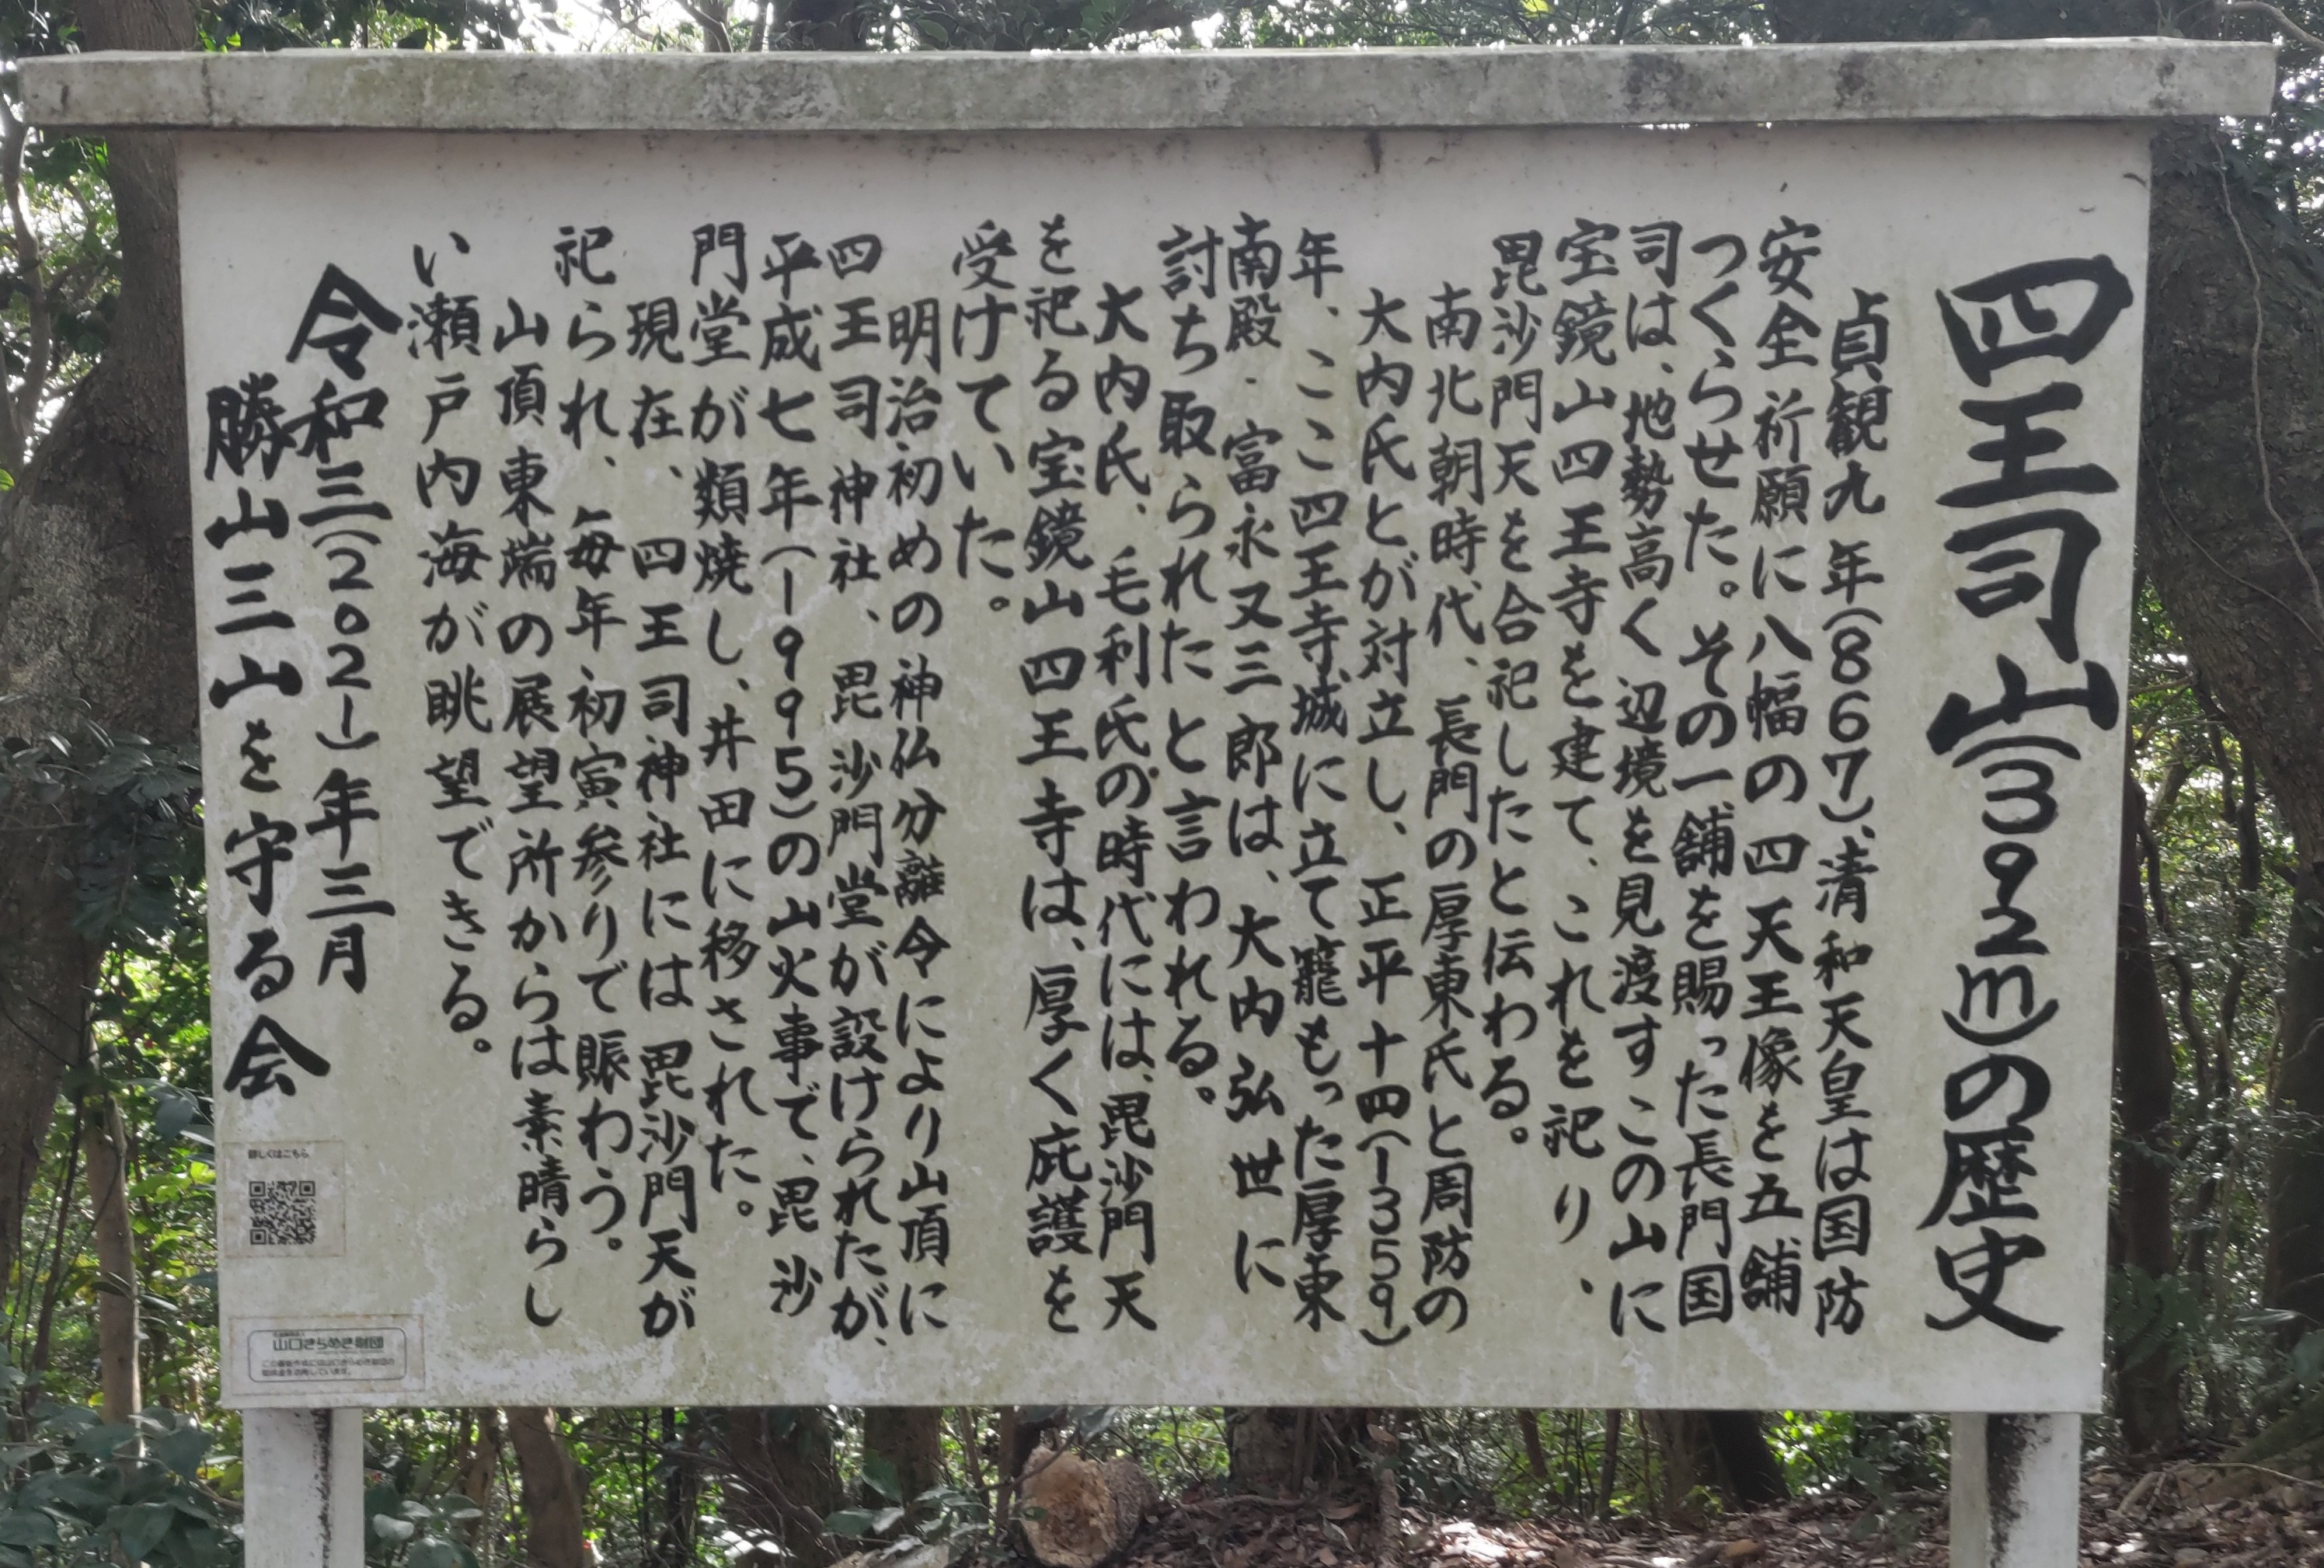 四王司山(392m)の歴史
貞観九年(867)、清和天皇は国防
安全祈願に八幅の四天王像を五舗
つくらせた。その一舗を賜った長門国
司は、地勢高く辺境を見渡すこの山に
宝鏡山四王寺を建て、これを祀り、
毘沙門天を合祀したと伝わる。
南北朝時代、長門の厚東氏と周防の
大内氏とが対立し、正平十四(1359)
年、ここ四王寺城に立て籠もった厚東
南殿・富永又三郎は、大内弘世に
討ち取られたと言われる。
大内氏、毛利氏の時代には、毘沙門天
を祀る宝鏡山四王寺は、厚く庇護を
受けていた。
明治初めの神仏分離令により山頂に
四王司神社、毘沙門堂が設けられたが、
平成七年(1995)の山火事で、毘沙
門堂が類焼し、井田に移された。
現在、四王司神社には毘沙門天が
祀られ、毎年初寅参りで賑わう。
山頂東端の展望所からは素晴らし
い瀬戸内海が眺望できる。
令和三(2021)年三月
勝山三山を守る会
詳しくはこちら
山口きらめき財団